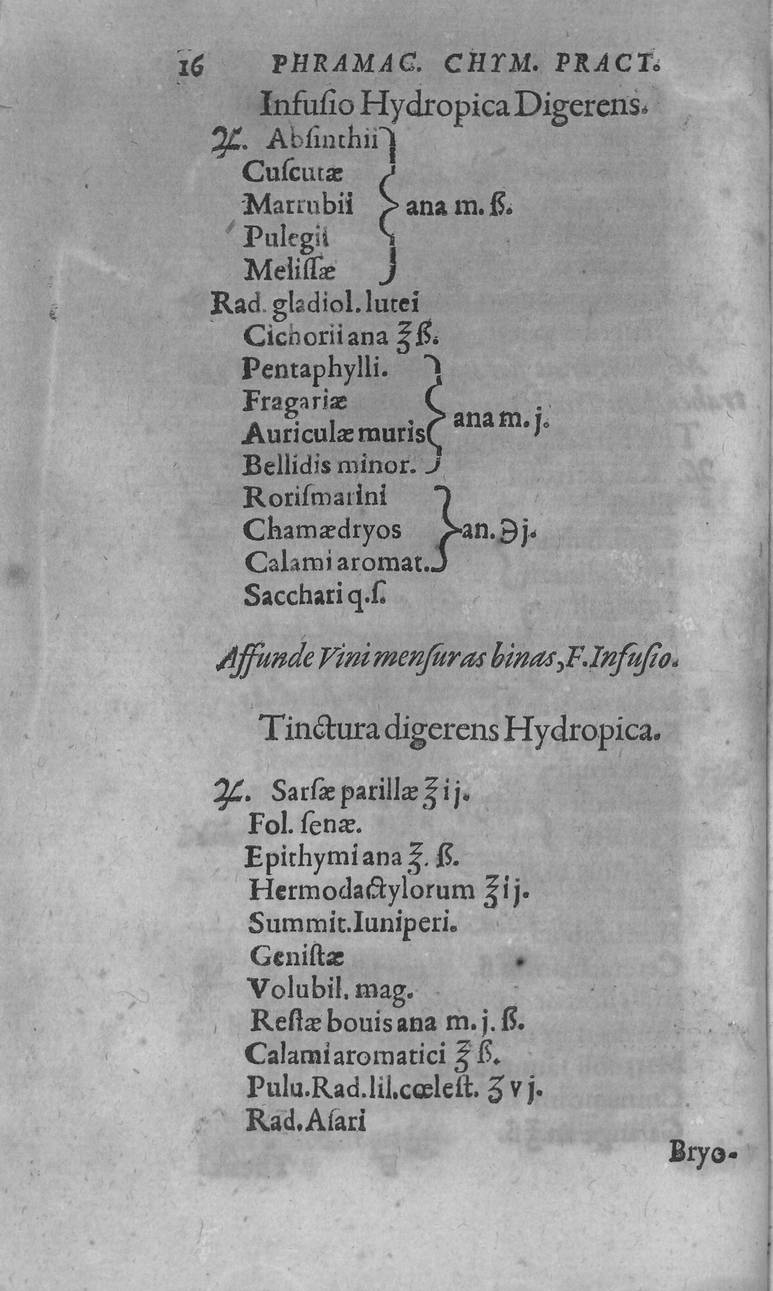 16 PHRAMAC. CHYM. PRACT.
Infuſio Hydropica Digerens.
♃. Abſinthii
Cuſcutæ
Marrubii ana m. ß.
Pulegii
Meliſſæ
Rad. gladiol. lutei
Cichorii ana ℥ ß.
Pentaphylli.
Fragariæ
Auriculæ muris ana m. j.
Bellidis minor.
Roriſmarini
Chamædryos an. ℈ j.
Calami aromat.
Sacchari q. ſ.
Affunde Vini menſuras binas, F. Infuſio.
Tinctura digerens Hydropica.
♃. Sarſæ parillæ ℥ ij.
Fol. ſenæ.
Epithymi ana ℥. ß.
Hermodactylorum ℥ ij.
Summit. Iuniperi.
Geniſtæ
Volubil. mag.
Reſtæ bouis ana m. j. ß.
Calami aromatici ℥ ß.
Pulu. Rad. lil. cœleſt. ʒ v j.
Rad. Aſari
Bryo-